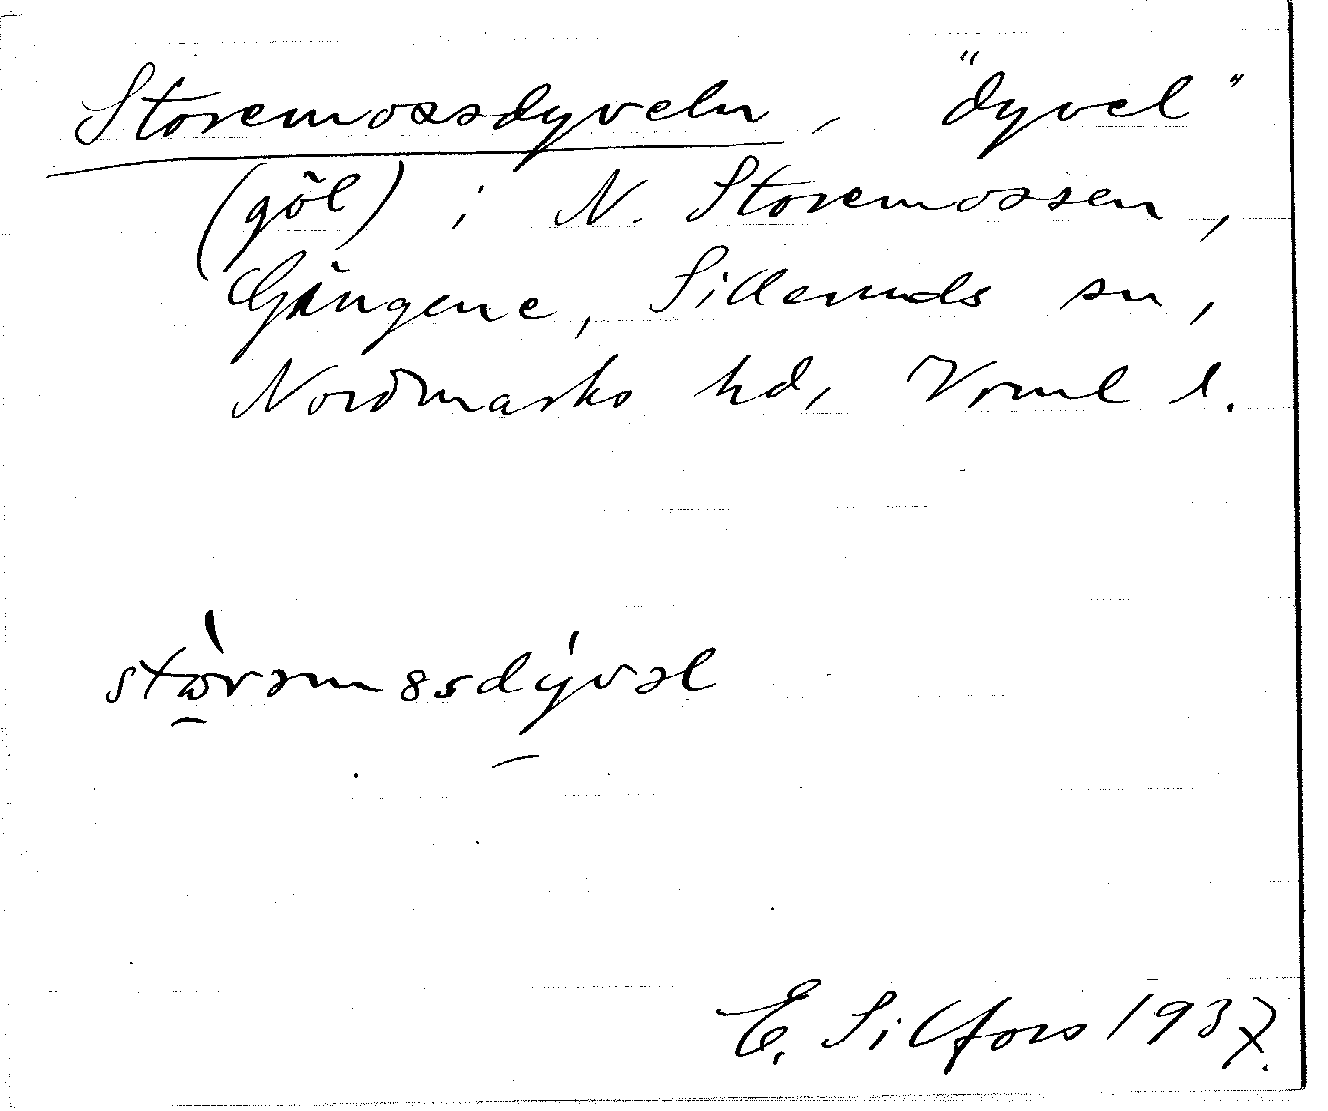 Storemossdyveln, "dyvel"
(göl) i N. Storemossen,
Gängene, Silleruds sn,
Nordmarks hd, Vrml l.
E. Silfors 1937.